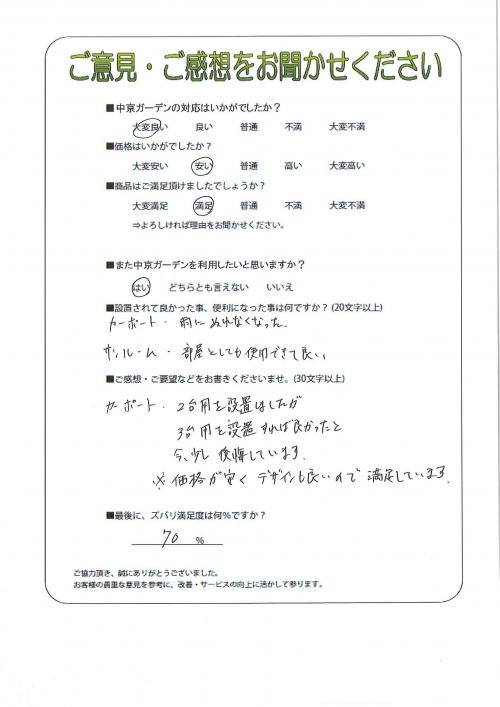 ご意見・ご感想をお聞かせください
■中京ガーデンの対応はいかがでしたか？
大変良い　良い　普通　不満　大変不満
■価格はいかがでしたか？
大変安い　安い　普通　高い　大変高い
■商品はご満足頂けましたでしょうか？
大変満足　満足　普通　不満　大変不満
⇒よろしければ理由をお聞かせください。
■また中京ガーデンを利用したいと思いますか？
はい　どちらとも言えない　いいえ
■設置されて良かった事、便利になった事は何ですか？(20文字以上)
カーポート・雨にぬれなくなった.
サンルーム・部屋としても使用できて良い。
■ご感想・ご要望などをお書きくださいませ。(30文字以上)
カーポート・2台用を設置はしたが
3台用を設置すれば良かったと
今、少し後悔しています.
※価格が安くデザインも良いので満足しています.
■最後に、ズバリ満足度は何％ですか？
70 ％
ご協力頂き、誠にありがとうございました。
お客様の貴重な意見を参考に、改善・サービスの向上に活かして参ります。